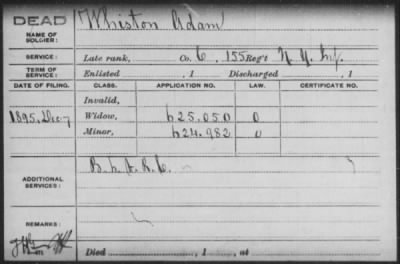 DEAD Whiston Adam
NAME OF SOLDIER:
SERVICE: Late rank, Co. C, 155 Reg't N. Y. Inf.
TERM OF SERVICE: Enlisted , 1 Discharged , 1
DATE OF FILING. CLASS. APPLICATION NO. LAW. CERTIFICATE NO.
Invalid,
1895, Dec 7 Widow, 625.050 0
Minor, 624.982 0
ADDITIONAL SERVICES:
REMARKS:
Died , 1 , at